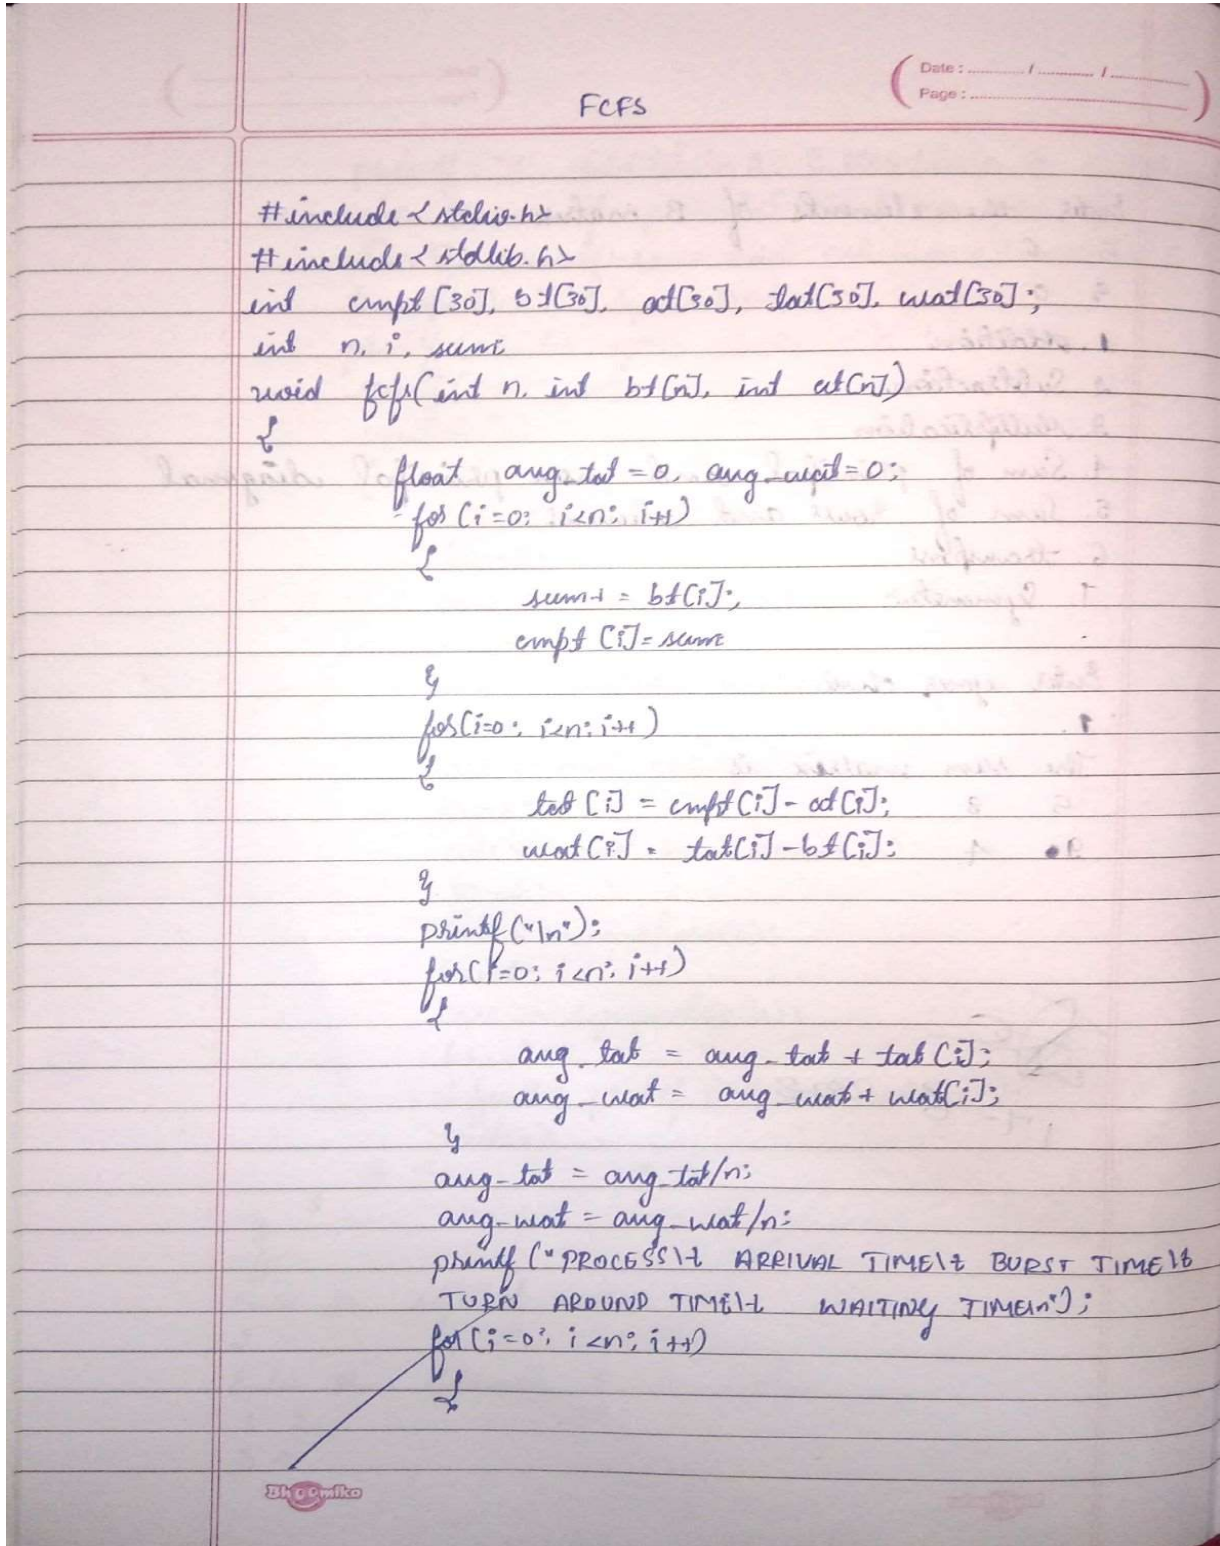 Date : ............ / ............ / ............
Page : ............
FCFS
#include <stdio.h>
#include <stdlib.h>
int cmpt [30], bt[30], at[30], tat[30], wat[30];
int n, i, sum
void fcfs(int n, int bt[n], int at[n])
{
float avg_tat = 0, avg_wat = 0;
for (i=0; i<n; i++)
{
sum+ = bt[i];
cmpt [i] = sum
}
for(i=0; i<n; i++)
{
tat [i] = cmpt[i] - at[i];
wat[i] = tat[i] - bt[i];
}
printf("\n");
for(i=0; i<n; i++)
{
avg_tat = avg_tat + tat[i];
avg_wat = avg_wat + wat[i];
}
avg_tat = avg_tat/n;
avg_wat = avg_wat/n;
printf ("PROCESS\t ARRIVAL TIME\t BURST TIME\t
TURN AROUND TIME\t WAITING TIME\n");
for(i=0; i<n; i++)
{
Bhoomika